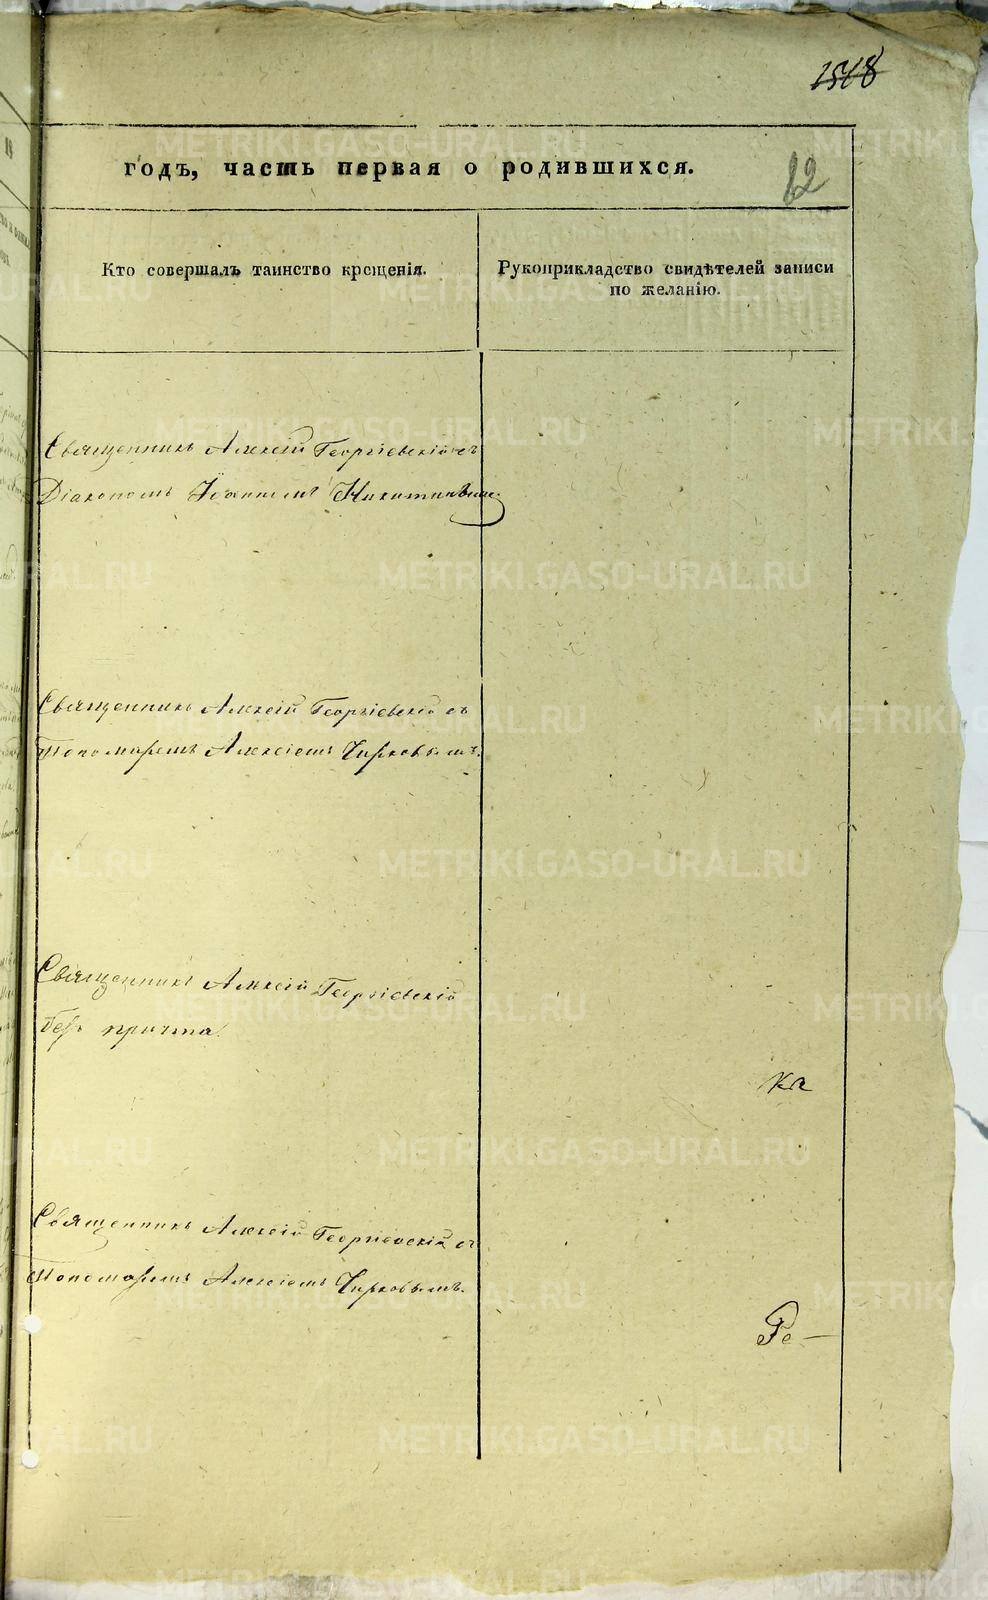 1518
годъ, часть первая о родившихся.
12
Кто совершалъ таинство крещенія.
Рукоприкладство свидѣтелей записи
по желанію.
Священникъ Алексій Георгіевскій съ
Діакономъ Іоанномъ Никитинымъ.
Священникъ Алексій Георгіевскій съ
Пономаремъ Алексіемъ Чирковымъ.
Священникъ Алексій Георгіевскій
безъ причта.
Священникъ Алексій Георгіевскій съ
Пономаремъ Алексіемъ Чирковымъ.
Ре—
METRIKI.GASO-URAL.RU